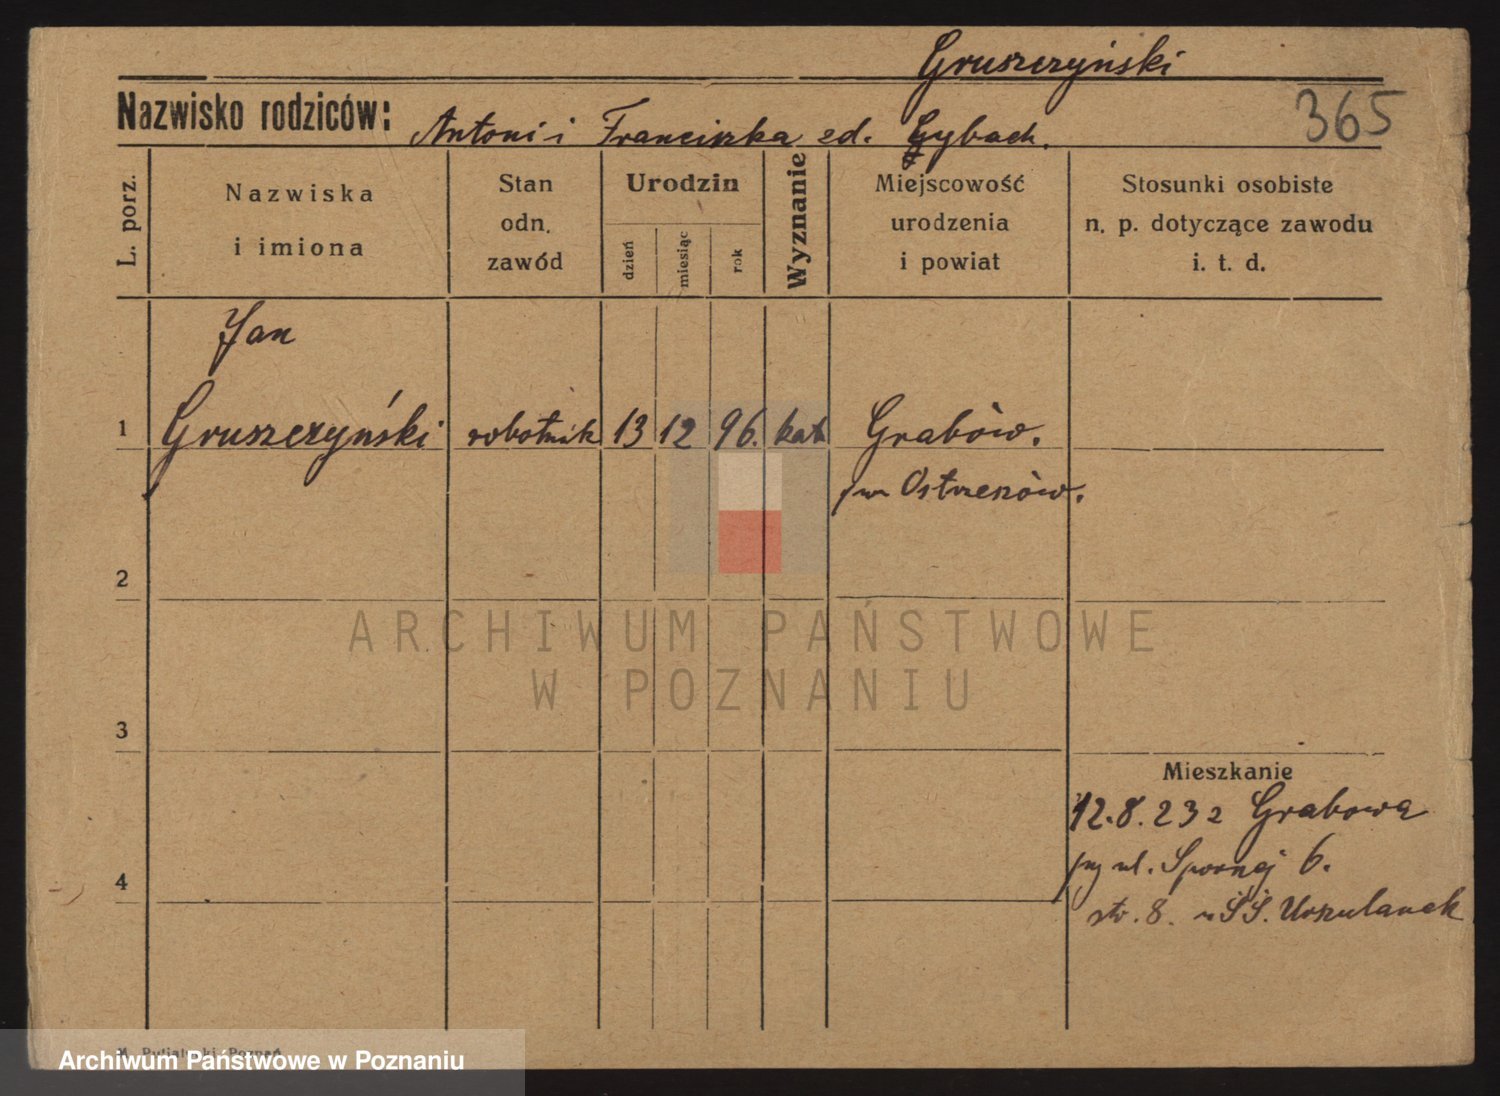 Gruszczyński
365
Nazwisko rodziców: Antoni i Franciszka zd. Gybach.
L. porz.
Nazwiska
i imiona
Stan
odn.
zawód
Urodzin
dzień
miesiąc
rok
Wyznanie
Miejscowość
urodzenia
i powiat
Stosunki osobiste
n. p. dotyczące zawodu
i. t. d.
Jan
1 Gruszczyński robotnik 13 12 96. kat. Grabów.
pw Ostrzeszów.
2
ARCHIWUM PAŃSTWOWE
W POZNANIU
3
Mieszkanie
12.8.23 z Grabowa
4
przy ul. Spornej 6.
str. 8. u SS. Urszulanek
Archiwum Państwowe w Poznaniu